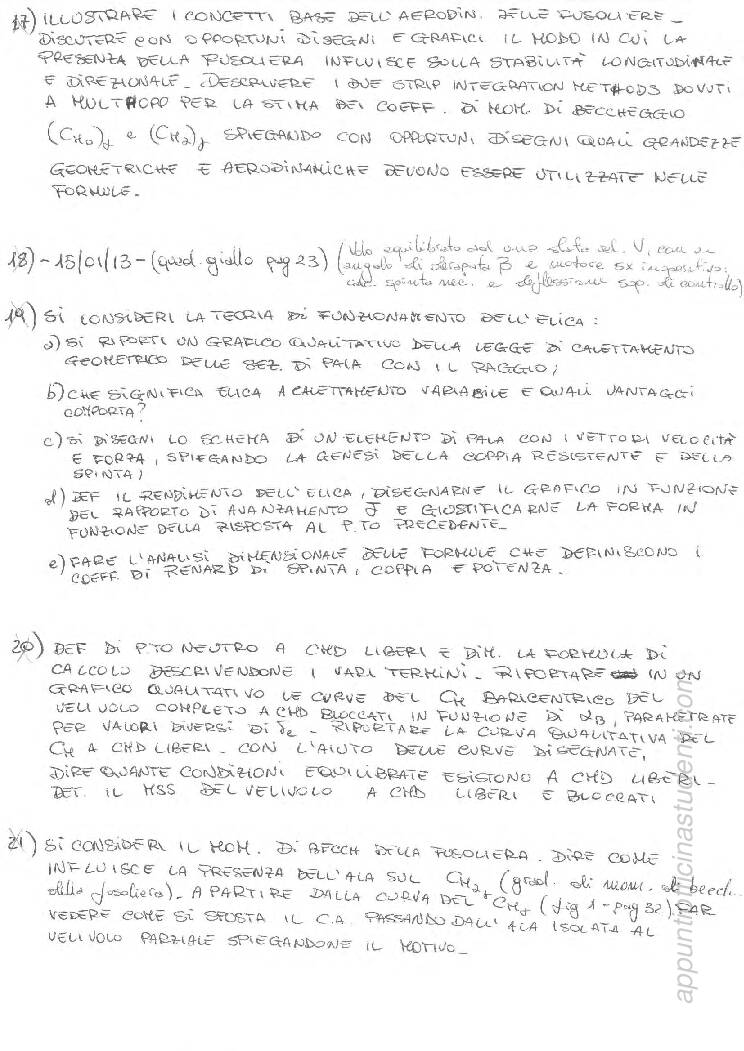 17) ILLUSTRARE I CONCETTI BASE DELL'AERODIN. DELLE FUSOLIERE -
DISCUTERE CON OPPORTUNI DISEGNI E GRAFICI IL MODO IN CUI LA
PRESENZA DELLA FUSOLIERA INFLUISCE SULLA STABILITÀ LONGITUDINALE
E DIREZIONALE - DESCRIVERE I DUE STRIP INTEGRATION METHODS DOVUTI
A MULTHOPP PER LA STIMA DEI COEFF. DI MOM. DI BECCHEGGIO
(CM0)f e (CMα)f SPIEGANDO CON OPPORTUNI DISEGNI QUALI GRANDEZZE
GEOMETRICHE E AERODINAMICHE DEVONO ESSERE UTILIZZATE NELLE
FORMULE.
18) - 15/01/13 - (quad. giallo pag 23) (Volo equilibrato ad una data vel. V, con un
angolo di derapata β e motore sx inoperativo:
calc. spinta nec. e deflessioni sup. di controllo)
19) SI CONSIDERI LA TEORIA DI FUNZIONAMENTO DELL'ELICA:
a) SI RIPORTI UN GRAFICO QUALITATIVO DELLA LEGGE DI CALETTAMENTO
GEOMETRICO DELLE SEZ. DI PALA CON IL RAGGIO;
b) CHE SIGNIFICA ELICA A CALETTAMENTO VARIABILE E QUALI VANTAGGI
COMPORTA?
c) SI DISEGNI LO SCHEMA DI UN ELEMENTO DI PALA CON I VETTORI VELOCITÀ
E FORZA, SPIEGANDO LA GENESI DELLA COPPIA RESISTENTE E DELLA
SPINTA;
d) DEF IL RENDIMENTO DELL'ELICA, DISEGNARNE IL GRAFICO IN FUNZIONE
DEL RAPPORTO DI AVANZAMENTO J E GIUSTIFICARNE LA FORMA IN
FUNZIONE DELLA RISPOSTA AL P.TO PRECEDENTE -
e) FARE L'ANALISI DIMENSIONALE DELLE FORMULE CHE DEFINISCONO I
COEFF. DI RENARD DI SPINTA, COPPIA E POTENZA.
20) DEF DI P.TO NEUTRO A CMD LIBERI E DIM. LA FORMULA DI
CALCOLO DESCRIVENDONE I VARI TERMINI - RIPORTARE IN UN
GRAFICO QUALITATIVO LE CURVE DEL CM BARICENTRICO DEL
VELIVOLO COMPLETO A CMD BLOCCATI IN FUNZIONE DI αB, PARAMETRATE
PER VALORI DIVERSI DI δe - RIPORTARE LA CURVA QUALITATIVA DEL
CM A CMD LIBERI - CON L'AIUTO DELLE CURVE DISEGNATE,
DIRE QUANTE CONDIZIONI EQUILIBRATE ESISTONO A CMD LIBERI -
DET. IL MSS DEL VELIVOLO A CMD LIBERI E BLOCCATI
21) SI CONSIDERI IL MOM. DI BECCH DELLA FUSOLIERA. DIRE COME
INFLUISCE LA PRESENZA DELL'ALA SUL CMαf (grad. di mom. di becch.
della fusoliera). A PARTIRE DALLA CURVA DEL CMf (fig 1 - pag 32) FAR
VEDERE COME SI SPOSTA IL C.A. PASSANDO DALL'ALA ISOLATA AL
VELIVOLO PARZIALE SPIEGANDONE IL MOTIVO -